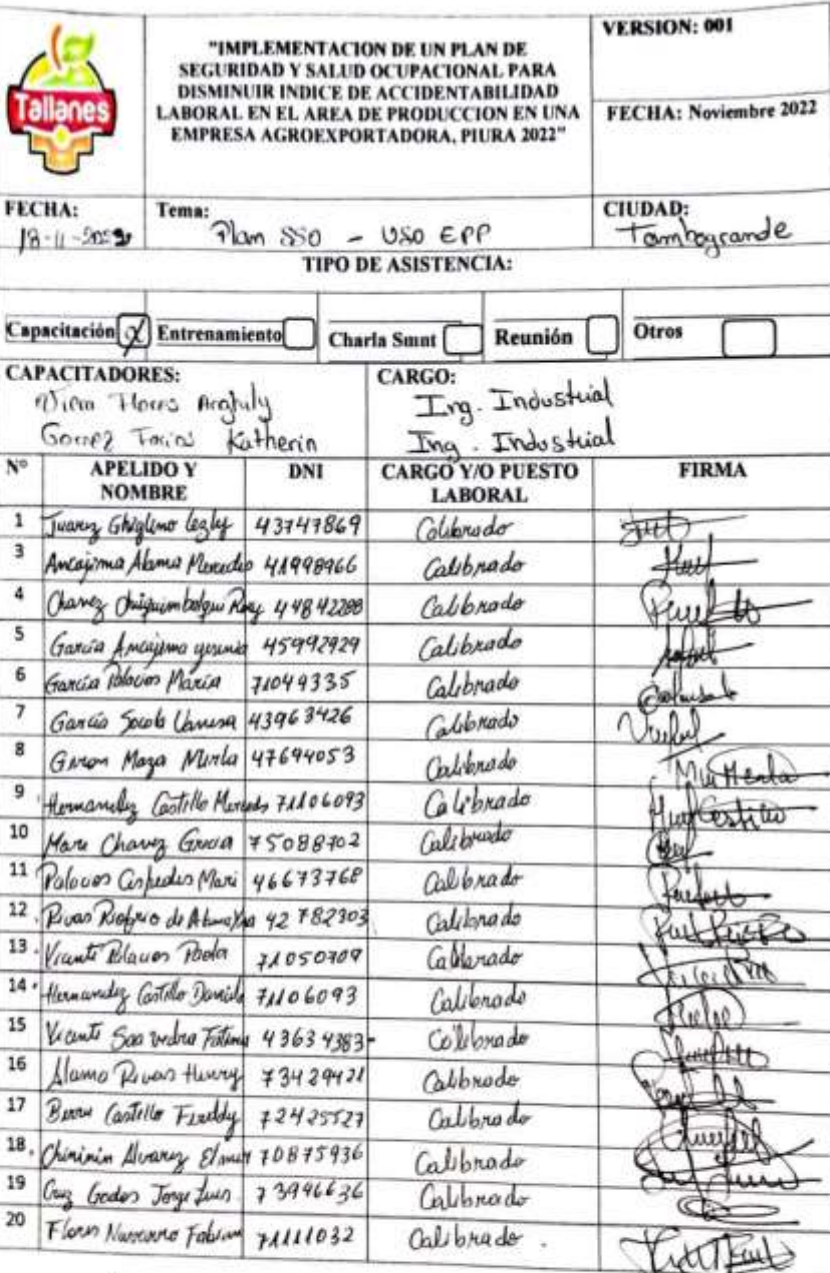 Tallanes
"IMPLEMENTACION DE UN PLAN DE
SEGURIDAD Y SALUD OCUPACIONAL PARA
DISMINUIR INDICE DE ACCIDENTABILIDAD
LABORAL EN EL AREA DE PRODUCCION EN UNA
EMPRESA AGROEXPORTADORA, PIURA 2022"
VERSION: 001
FECHA: Noviembre 2022
FECHA:
Tema:
Plan SSO - USO EPP
CIUDAD:
Tambogrande
TIPO DE ASISTENCIA:
Capacitación Entrenamiento Charla Smnt Reunión Otros
CAPACITADORES: CARGO:
Flores Ing. Industrial
Gomez Katherin Ing. Industrial
N° APELIDO Y NOMBRE DNI CARGO Y/O PUESTO LABORAL FIRMA
1 Juarez Ghiglino 43747869 Calibrado
3 Ancajima Alama Mercedes 41998966 Calibrado
4 Chavez 44842288 Calibrado
5 Garcia Ancajima 45992929 Calibrado
6 Garcia Palacios Maria 71049335 Calibrado
7 Garcia Vanessa 43963426 Calibrado
8 Giron Maza Mirla 47694053 Calibrado
9 Hernandez Castillo Mercedes 71106093 Calibrado
10 Mare Chavez 75088702 Calibrado
11 Palacios Cespedes Mari 46673768 Calibrado
12 Rivas Riofrio de 42782303 Calibrado
13 Vicente Palacios Paola 71050709 Calibrado
14 Hernandez Castillo Daniela 71106093 Calibrado
15 Vicente Saavedra Fatima 43634383 Calibrado
16 Alamo Rivas Henry 73429421 Calibrado
17 Berru Castillo Freddy 72425527 Calibrado
18 Alvarez Elmer 70875936 Calibrado
19 Cruz Godos Jorge Luis 73946636 Calibrado
20 Flores Navarro Fabian 71111032 Calibrado